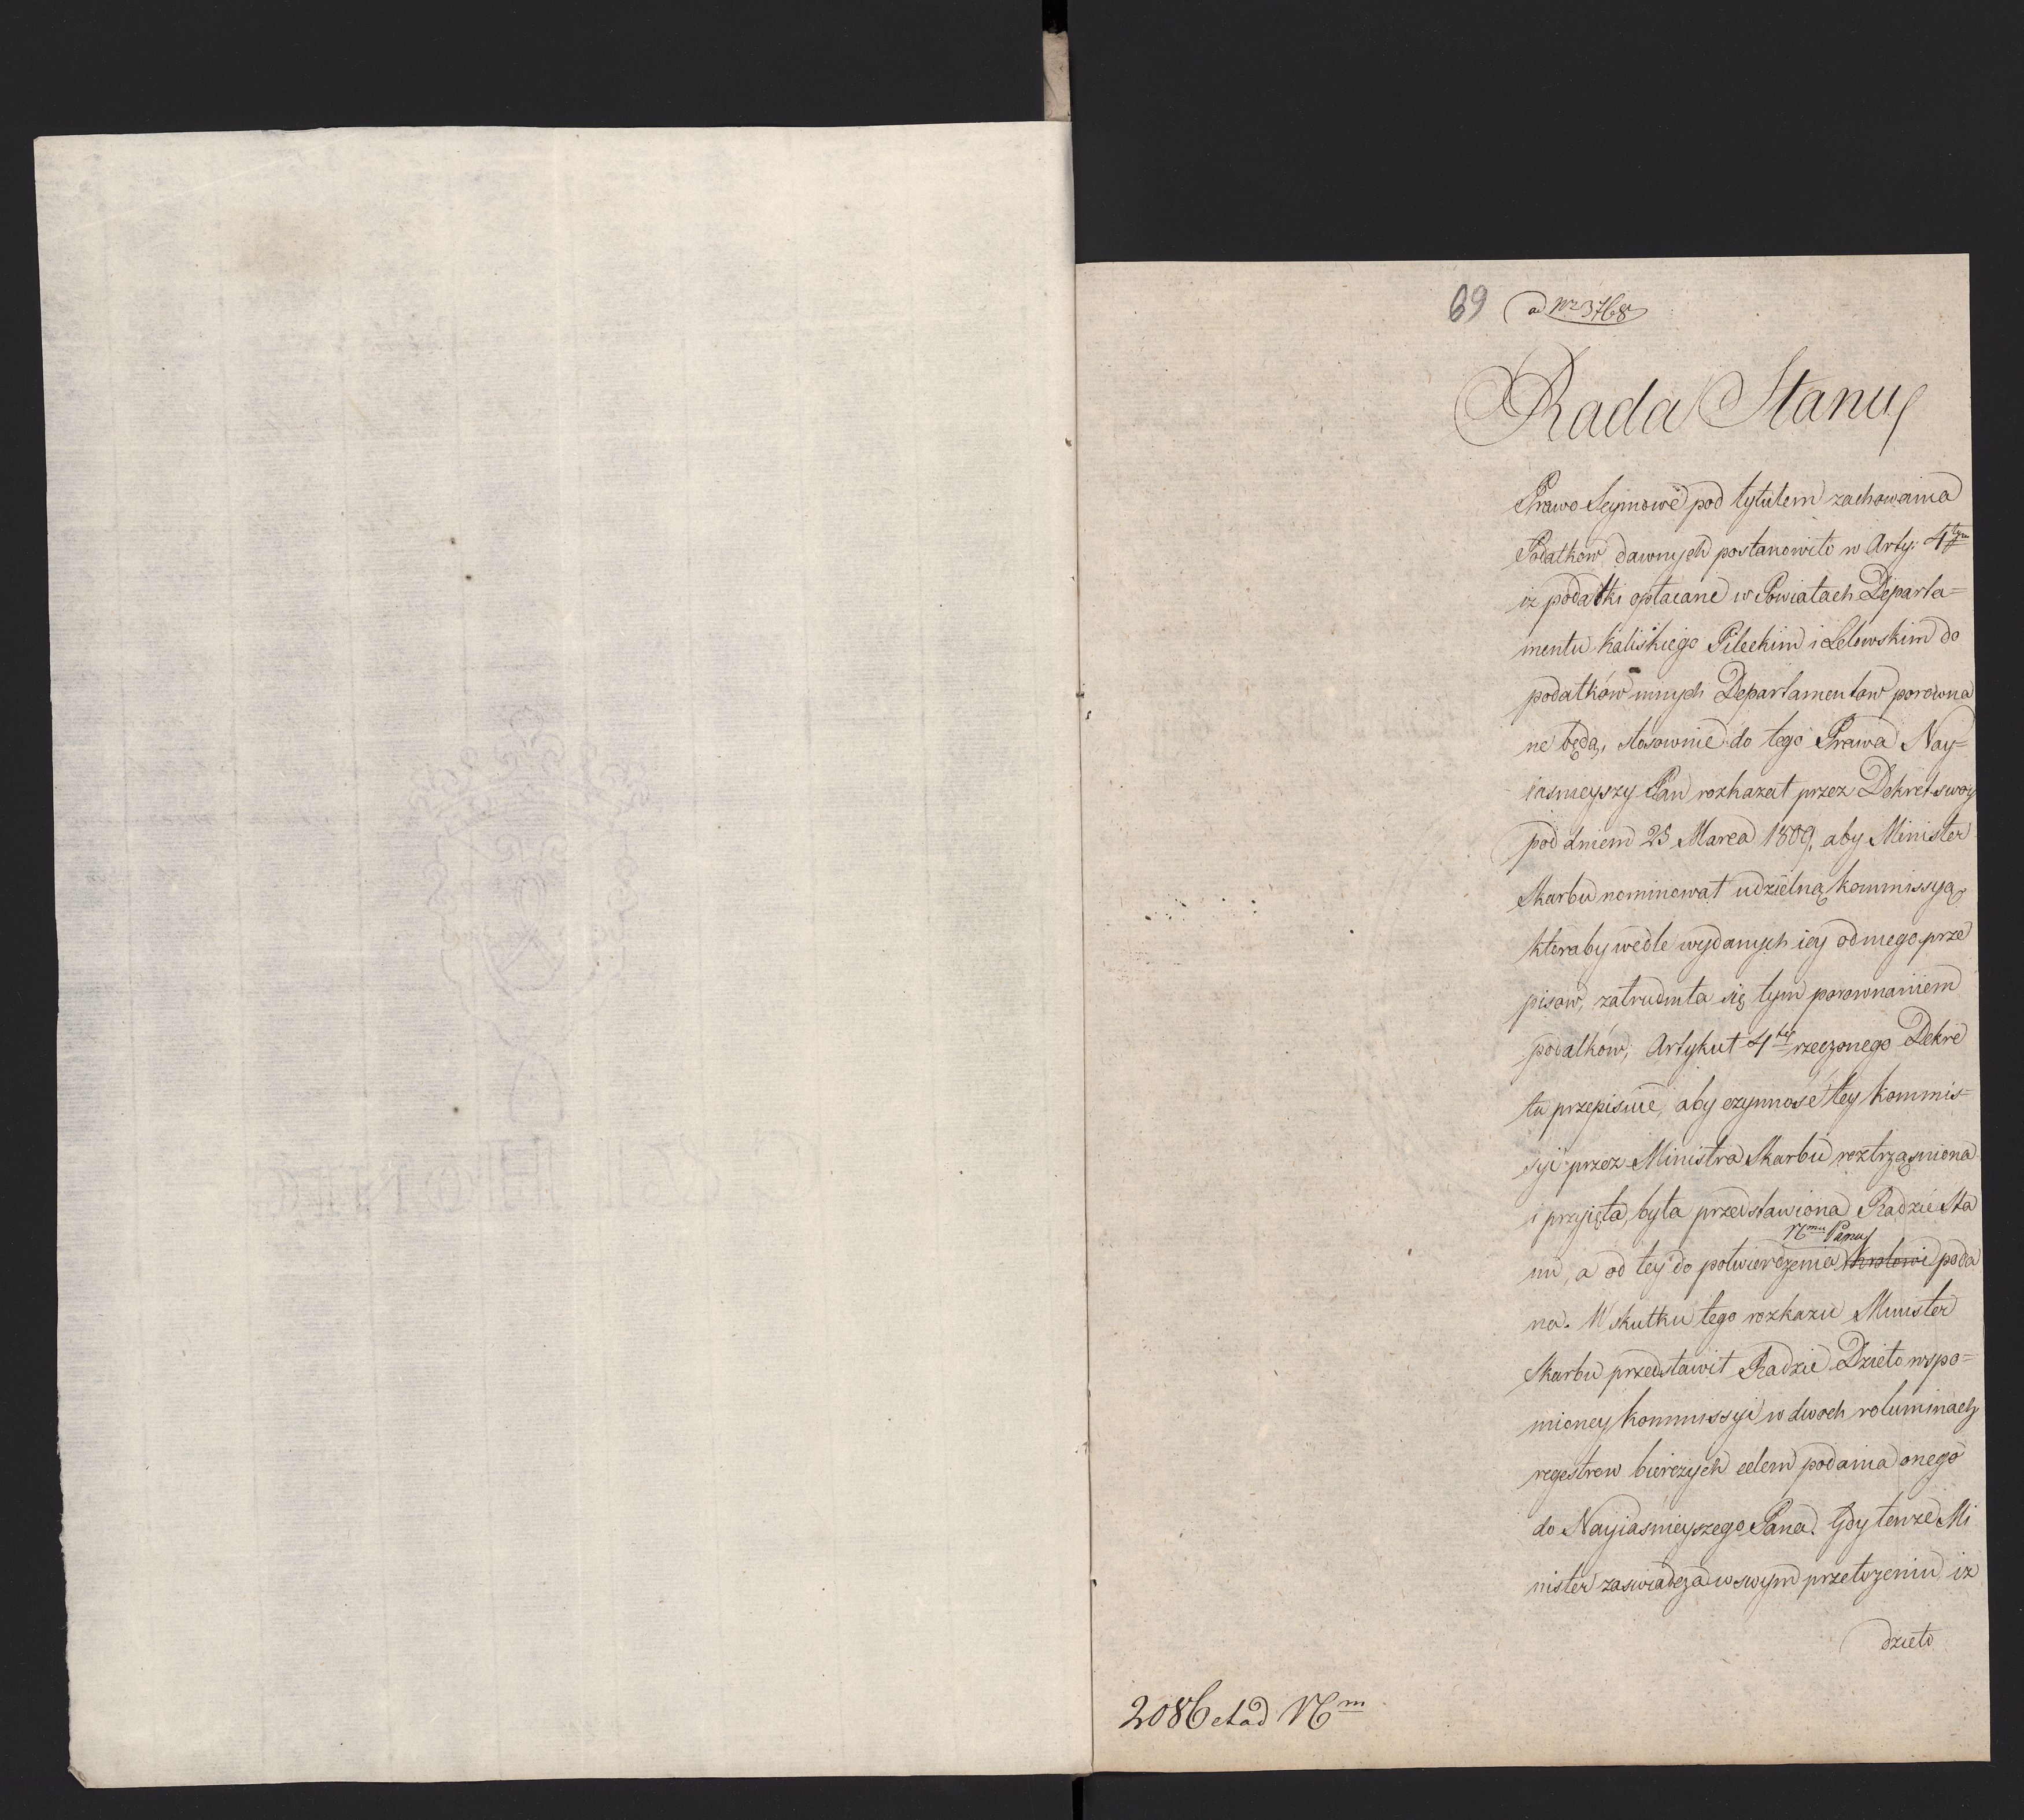 69 ad Nr 3768
Rada Stanu
Prawo Seymowe pod tytułem zachowania
Podatkow dawnych postanowiło w Arty: 4tym
iz podatki opłacane w Powiatach Departa=
mentu Kaliskiego Pileckim i Lelowskim do
podatków innych Departamentow porowna
ne będą, stosownie do tego Prawa Nay=
iasnieyszy Pan rozkazał przez Dekret swoy
pod dniem 25 Marca 1809, aby Minister
Skarbu nominował udzielną kommissyą
ktoraby wedle wydanych iey od niego prze
pisow, zatrudniła się tym porownaniem
podatków; Artykuł 4ty rzeczonego Dekre
tu przepisuie, aby czynność tey kommis=
syi przez Ministra Skarbu roztrząsniona
i przyięta, była przedstawiona Radzie Sta
Nmu Panu
nu, a od tey do potwierdzenia Krolowi poda
na. W skutku tego rozkazu Minister
Skarbu przedstawił Radzie Dzieło wspo=
mioney kommissyi w dwoch voluminach
regestrow bierczych celem podania onego
do Nayiasnieyszego Pana. Gdy tenze Mi
nister zaswiadcza w swym przełozeniu iz
dzieło
2086 et ad Nm